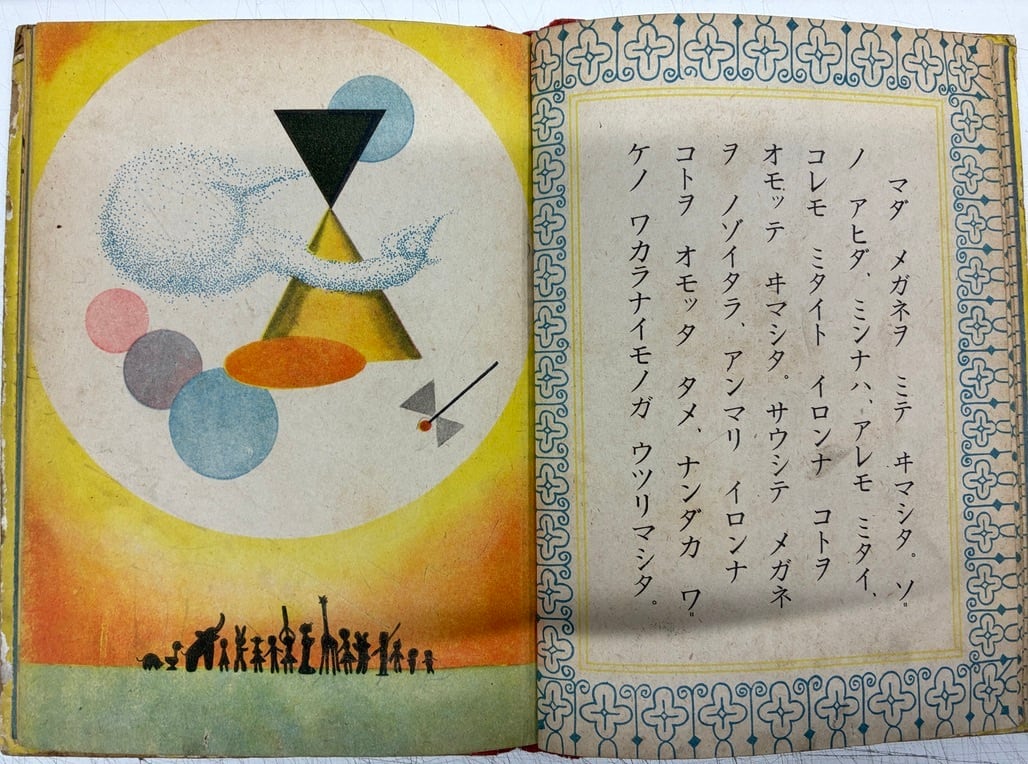 マダ メガネヲ ミテ ヰマシタ。ソ
ノ アヒダ、ミンナハ、アレモ ミタイ、
コレモ ミタイト イロンナ コトヲ
オモッテ ヰマシタ。サウシテ メガネ
ヲ ノゾイタラ、アンマリ イロンナ
コトヲ オモッタ タメ、ナンダカ ワ
ケノ ワカラナイモノガ ウツリマシタ。